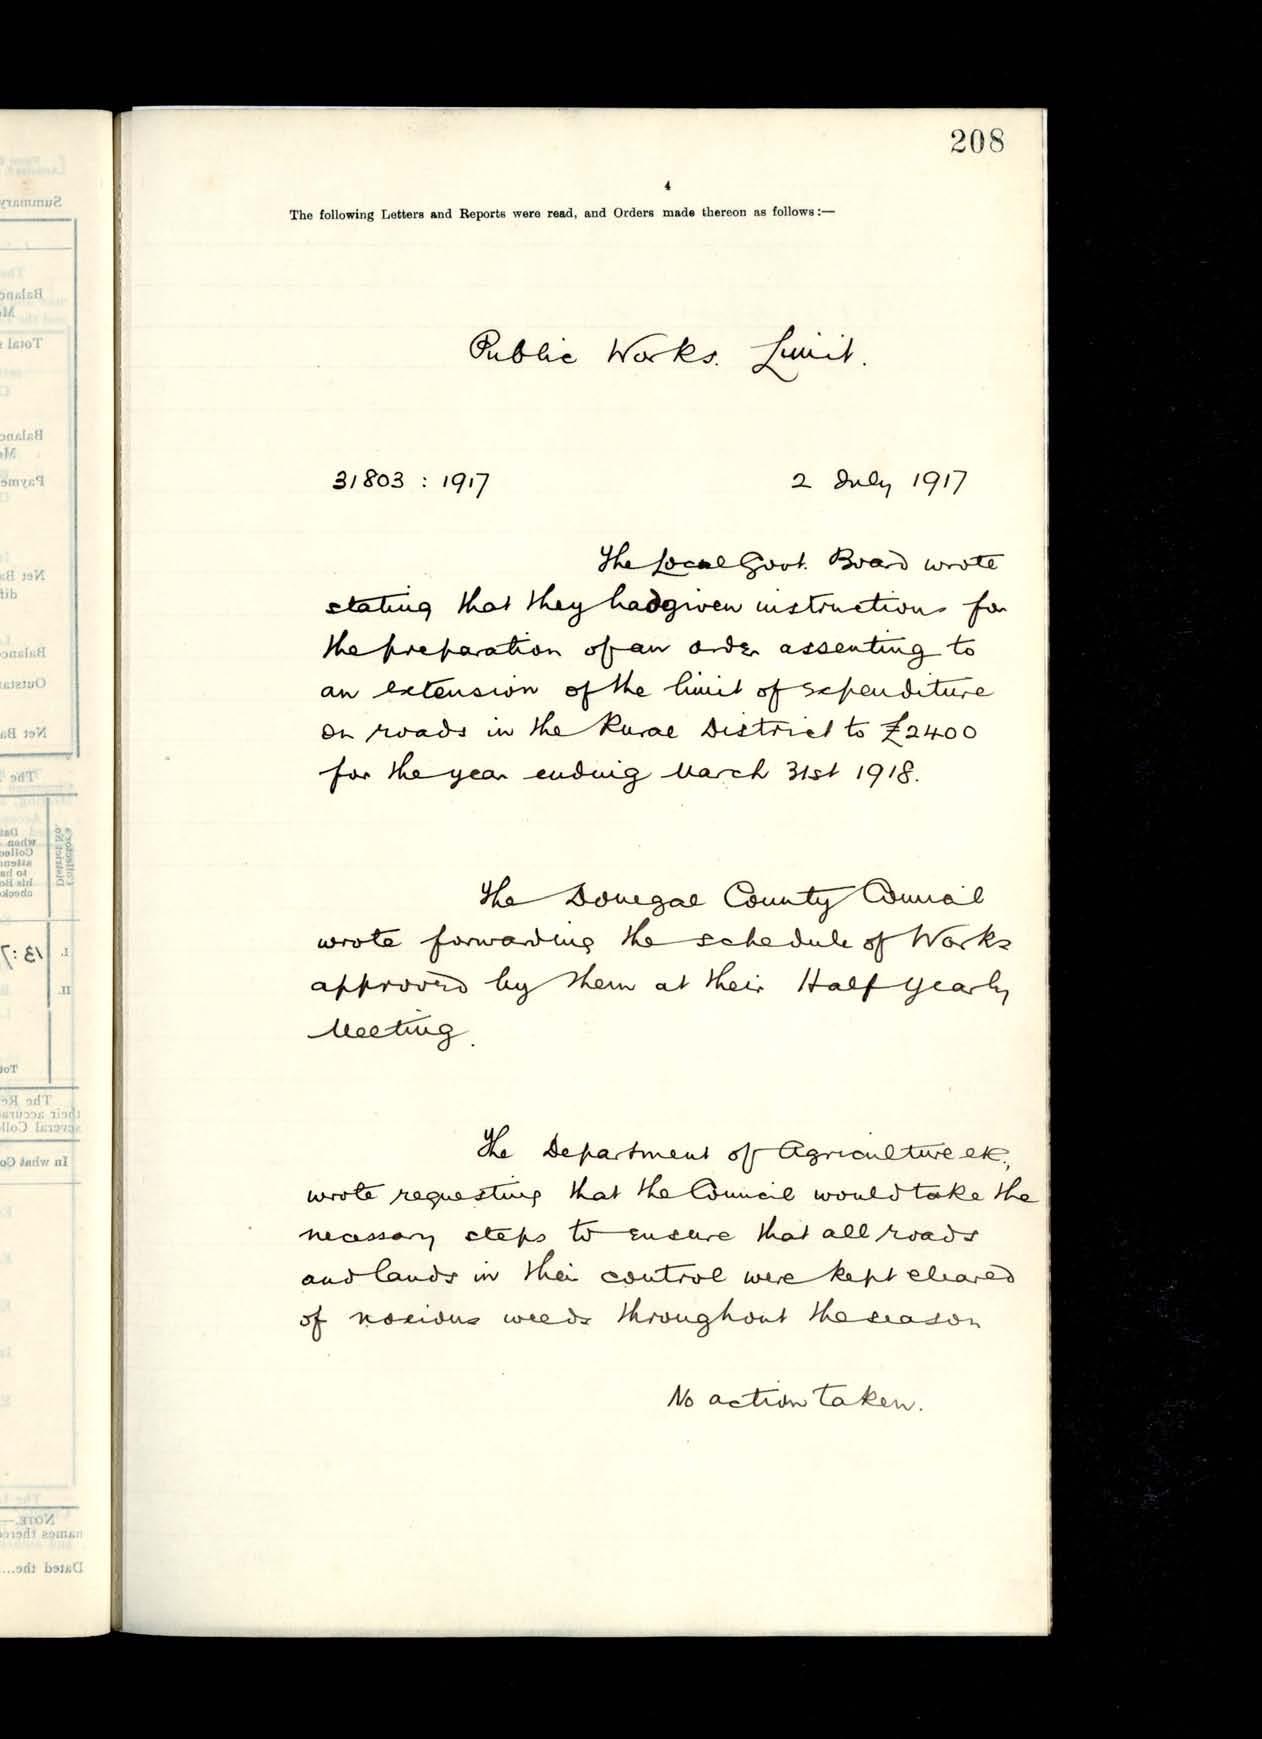 208
4
The following Letters and Reports were read, and Orders made thereon as follows:—
Public Works. Limit.
31803 : 1917 2 July 1917
The Local Govt. Board wrote
stating that they had given instructions for
the preparation of an order assenting to
an extension of the limit of expenditure
on roads in the Rural District to £2400
for the year ending March 31st 1918.
The Donegal County Council
wrote forwarding the schedule of Works
approved by them at their Half Yearly
Meeting.
The Department of Agriculture etc.,
wrote requesting that the Council would take the
necessary steps to ensure that all roads
and lands in their control were kept cleared
of noxious weeds throughout the season
No action taken.